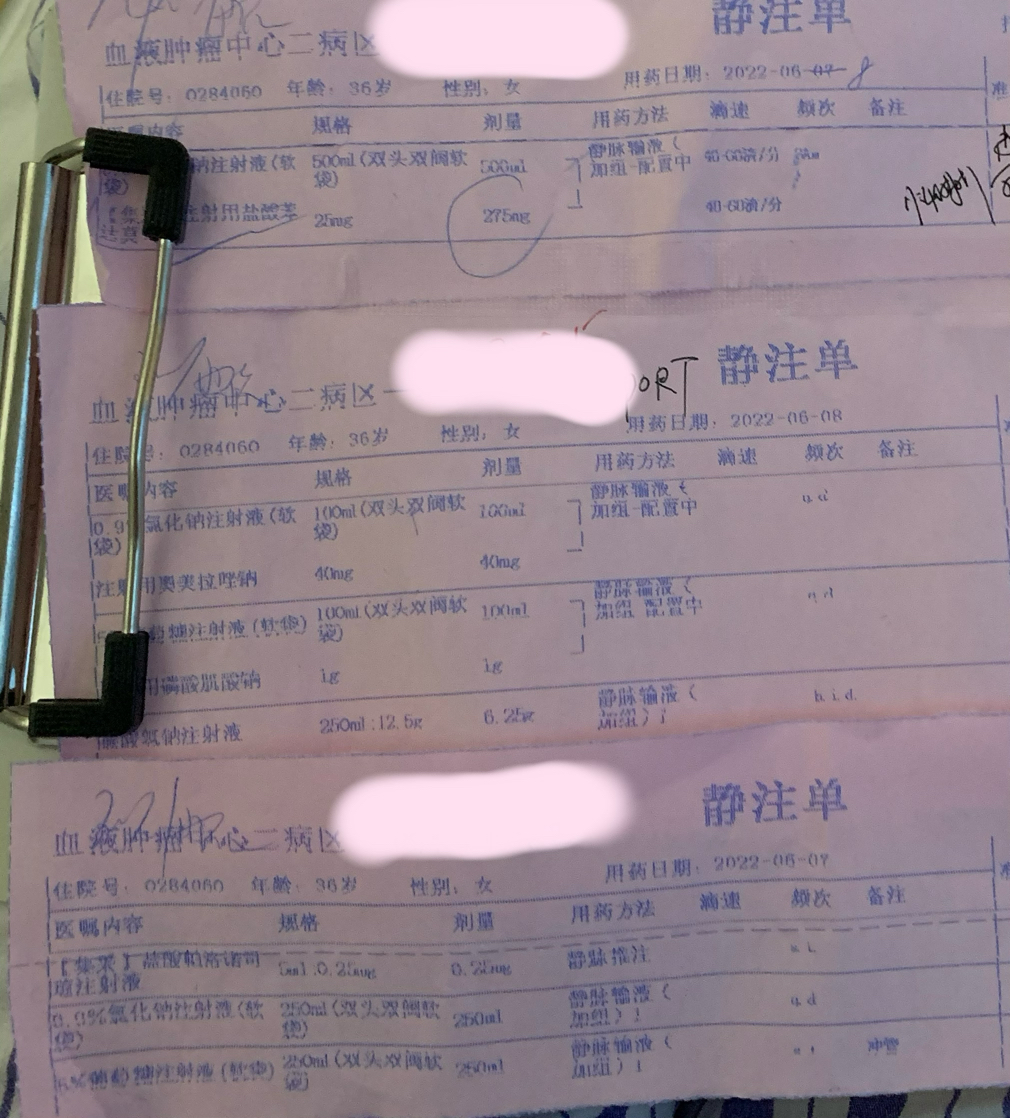 静注单
血液肿瘤中心二病区
用药日期：2022-06-07 8
住院号：0284060 年龄：36岁 性别：女
内容 规格 剂量 用药方法 滴速 频次 备注
钠注射液(软 500ml(双头双阀软 500ml 静脉输液( 40-60滴/分
袋) 袋) 加组-配置中
射用盐酸苯 25mg 275mg 40-60滴/分
达莫
静注单
PORT
血液肿瘤中心二病区一
用药日期：2022-06-08
住院号：0284060 年龄：36岁 性别：女
医嘱内容 规格 剂量 用药方法 滴速 频次 备注
0.9 氯化钠注射液(软 100ml(双头双阀软 100ml 静脉输液( q d
袋) 袋) 加组-配置中
注射用奥美拉唑钠 40mg 40mg
葡糖注射液(软袋) 100ml(双头双阀软 100ml 静脉输液( q d
袋) 加组 配置中
用磷酸肌酸钠 1g 1g
酸氢钠注射液 250ml:12.5g 6.25g 静脉输液( b.i.d.
加组)i
静注单
血液肿瘤中心二病区
用药日期：2022-06-07
住院号：0284060 年龄：36岁 性别：女
医嘱内容 规格 剂量 用药方法 滴速 频次 备注
[集采]盐酸帕洛诺司 5ml:0.25mg 0.25mg 静脉推注
琼注射液
0.9%氯化钠注射液(软 250ml(双头双阀软 250ml 静脉输液( q d
袋) 袋) 加组)i
5%葡萄糖注射液(软袋) 250ml(双头双阀软 250ml 静脉输液( 冲管
袋) 加组)i